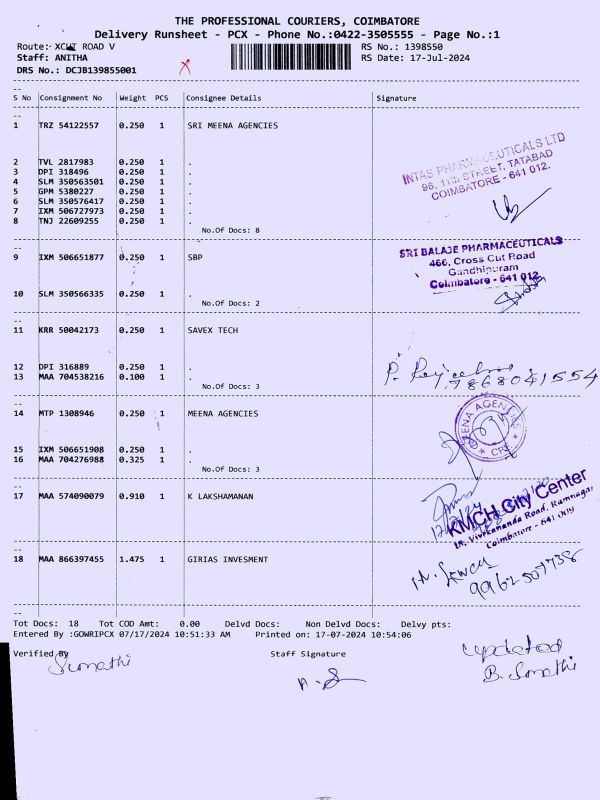 THE PROFESSIONAL COURIERS, COIMBATORE
Delivery Runsheet - PCX - Phone No.:0422-3505555 - Page No.:1
Route: ROAD V RS No.: 1398550
Staff: ANITHA RS Date: 17-Jul-2024
DRS No.: DCJB139855001 X
S No Consignment No Weight PCS Consignee Details Signature
1 TRZ 54122557 0.250 1 SRI MEENA AGENCIES
2 TVL 2817983 0.250 1 .
3 DPI 318496 0.250 1 .
4 SLM 350563501 0.250 1 .
5 GPM 5380227 0.250 1 .
6 SLM 350576417 0.250 1 .
7 IXM 506727973 0.250 1 .
8 TNJ 22609255 0.250 1 .
No.Of Docs: 8
INTAS PHARMACEUTICALS LTD
96, 11th STREET, TATABAD
COIMBATORE - 641 012.
9 IXM 506651877 0.250 1 SBP
10 SLM 350566335 0.250 1 .
No.Of Docs: 2
SRI BALAJE PHARMACEUTICALS
466, Cross Cut Road
Gandhipuram
Coimbatore - 641 012
11 KRR 50042173 0.250 1 SAVEX TECH
12 DPI 316889 0.250 1 .
13 MAA 704538216 0.100 1 .
No.Of Docs: 3
7868041554
14 MTP 1308946 0.250 1 MEENA AGENCIES
15 IXM 506651908 0.250 1 .
16 MAA 704276988 0.325 1 .
No.Of Docs: 3
MEENA AGENCIES
CBE
17 MAA 574090079 0.910 1 K LAKSHAMANAN
KMCH City Center
18, Vivekananda Road, Ramnagar
Coimbatore - 641 009
18 MAA 866397455 1.475 1 GIRIAS INVESMENT
9962507738
Tot Docs: 18 Tot COD Amt: 0.00 Delvd Docs: Non Delvd Docs: Delvy pts:
Entered By :GOWRIPCX 07/17/2024 10:51:33 AM Printed on: 17-07-2024 10:54:06
Verified By Staff Signature updated
Sumathi B. Sumathi